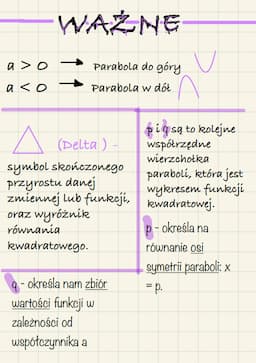 WAŻNE
a > 0 → Parabola do góry
a < 0 → Parabola w dół
(Delta) -
symbol skończonego
przyrostu danej
zmiennej lub funkcji,
oraz wyróżnik
równania
kwadratowego.
q - określa nam zbiór
wartości funkcji w
zależności od
współczynnika a
p i q są to kolejne
współrzędne
wierzchołka
paraboli, która jest
wykresem funkcji
kwadratowej.
p - określa na
równanie osi
symetrii paraboli: x
= p.